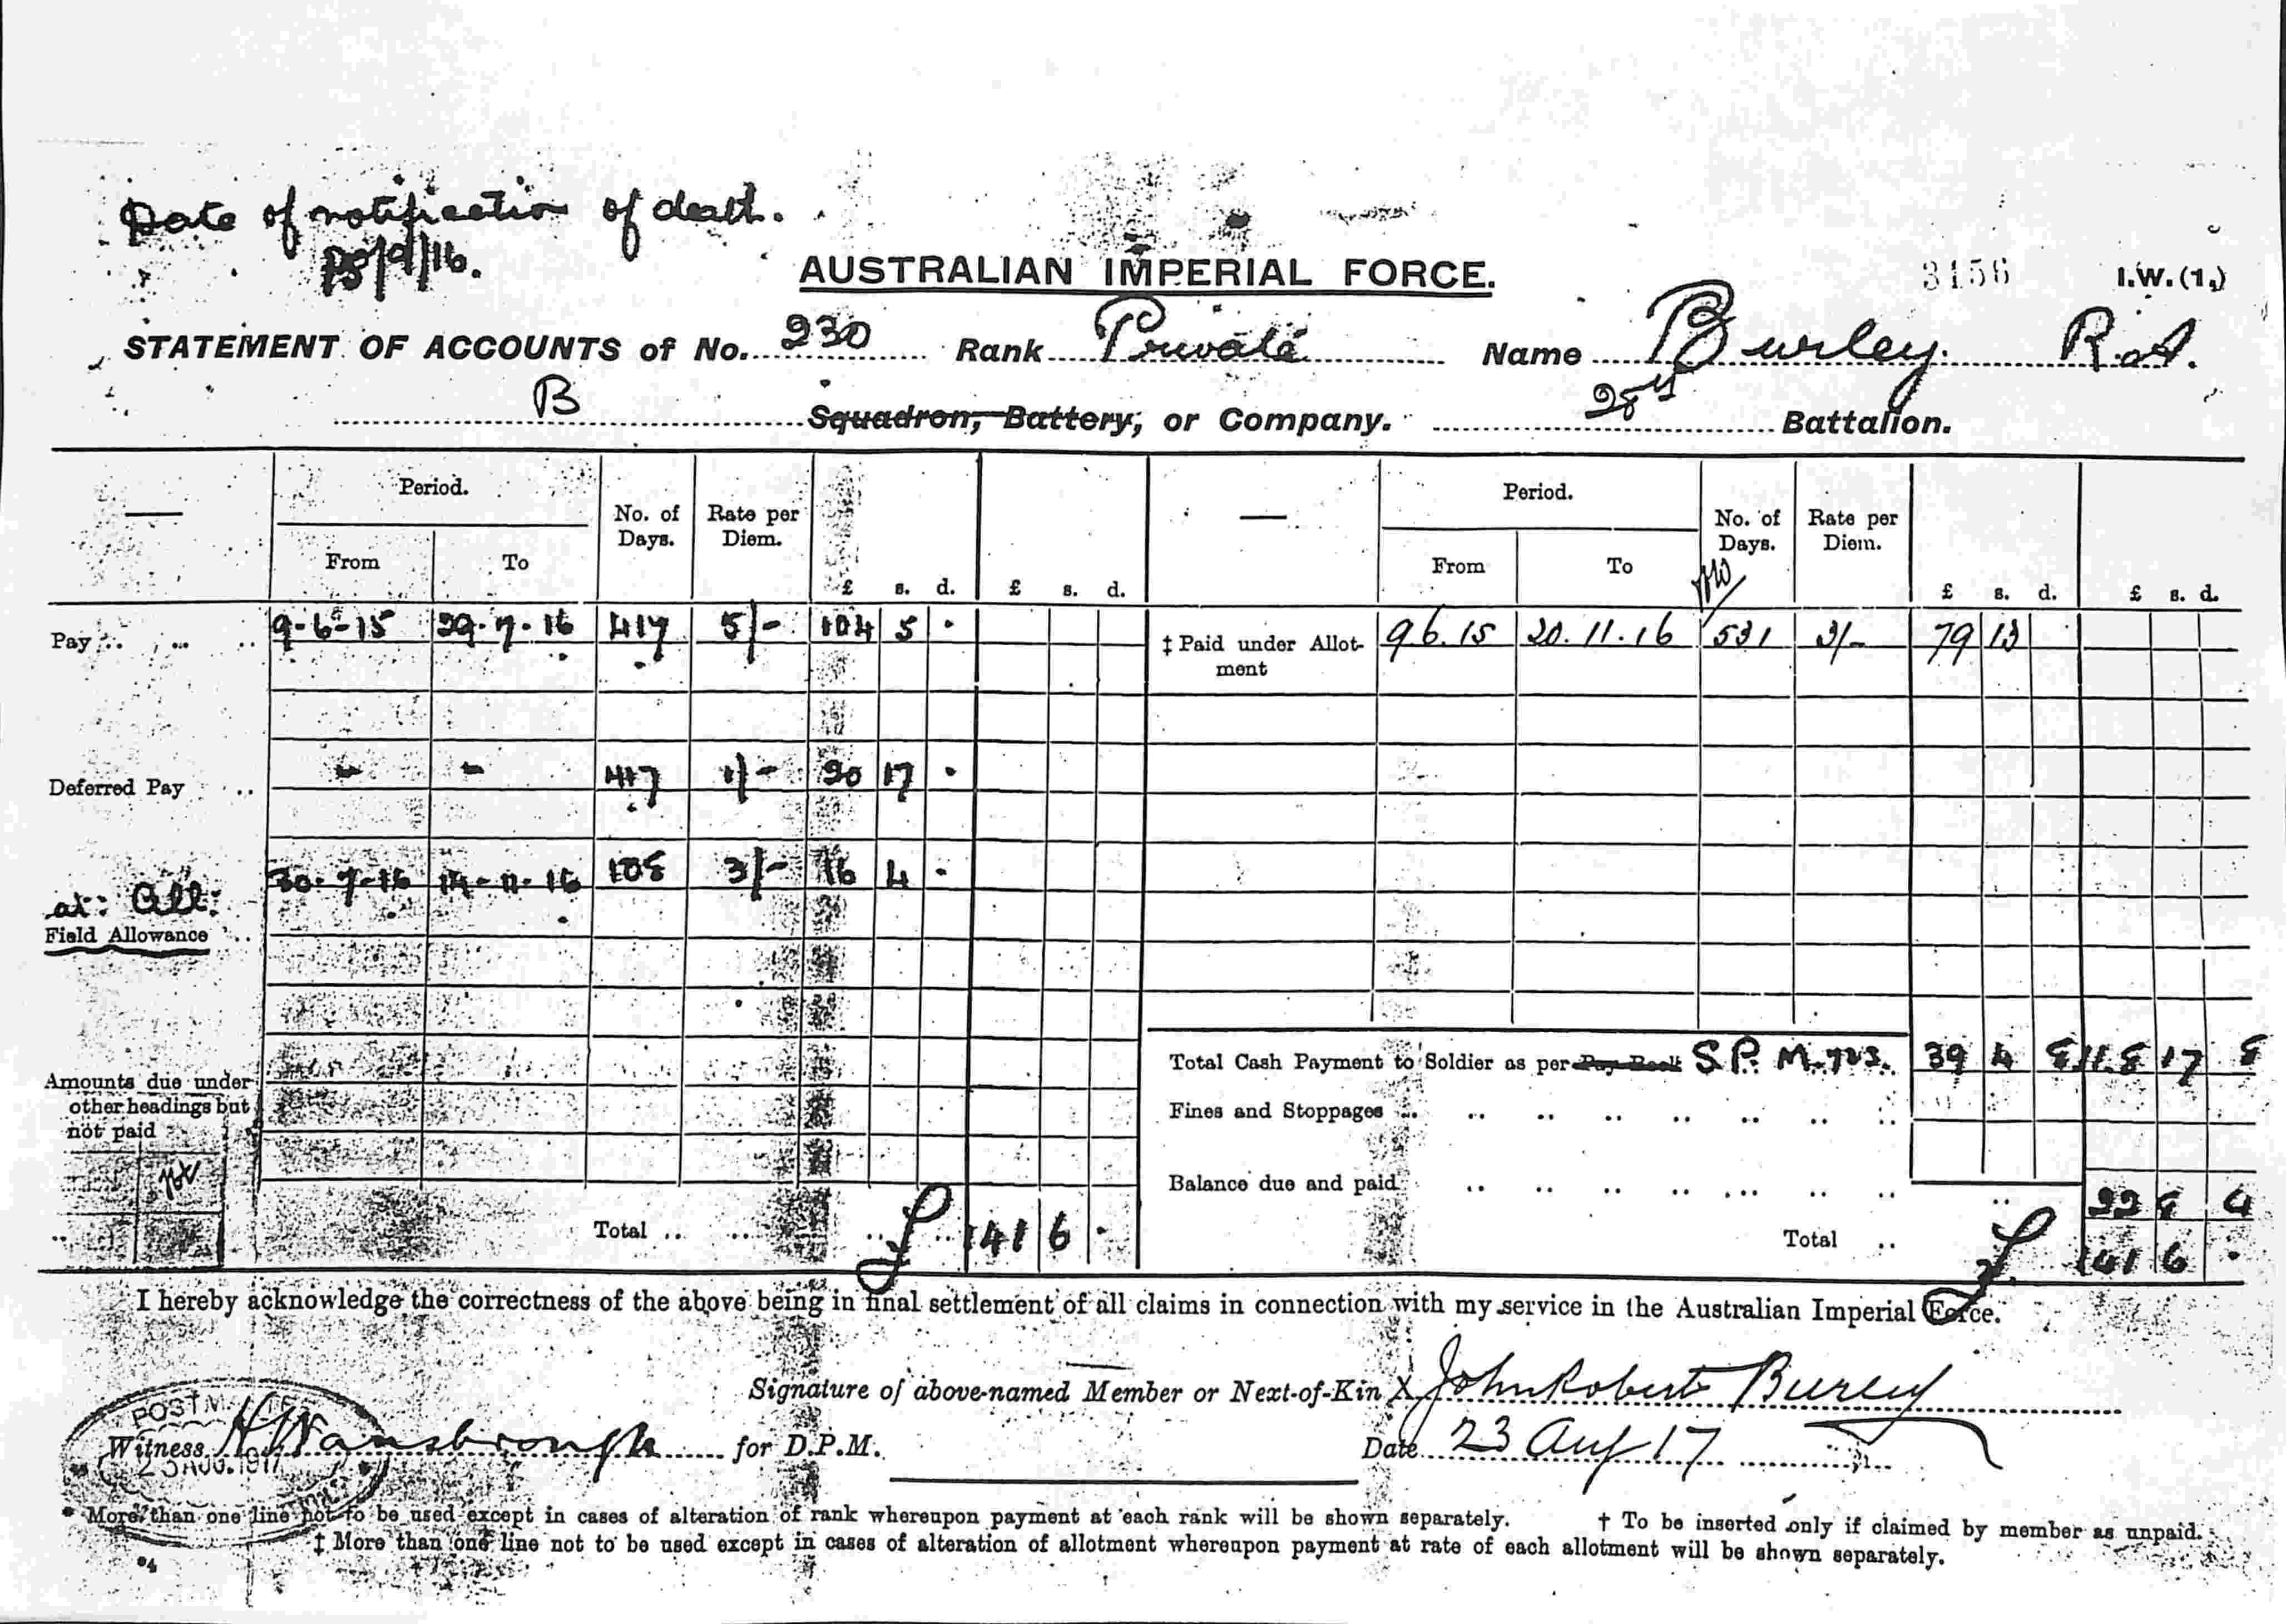 Date of notification of death.
/9/16.
AUSTRALIAN IMPERIAL FORCE.
3156 I.W. (1.)
STATEMENT OF ACCOUNTS of No. 230 Rank Private Name Burley R.A.
B Squadron, Battery, or Company. 28th Battalion.
Period. No. of Days. Rate per Diem. £ s. d. £ s. d. Period. No. of Days. Rate per Diem. £ s. d. £ s. d.
From To From To
Pay 9-6-15 29-7-16 417 5/- 104 5 · ‡ Paid under Allotment 9.6.15 20.11.16 531 3/- 79 13
Deferred Pay " " 417 1/- 20 17 ·
at: All: 30-7-16 14-11-16 108 3/- 16 4 ·
Field Allowance
Total Cash Payment to Soldier as per Pay Book S.P. M. 723. 39 4 8 118 17 8
Amounts due under other headings but not paid
Fines and Stoppages
Balance due and paid 22 8 4
Total £ 141 6 · Total £ 141 6 ·
I hereby acknowledge the correctness of the above being in final settlement of all claims in connection with my service in the Australian Imperial Force.
Signature of above-named Member or Next-of-Kin X John Robert Burley
Witness H Wansbrough for D.P.M. Date 23 Aug 17
23 AUG. 1917
* More than one line not to be used except in cases of alteration of rank whereupon payment at each rank will be shown separately. † To be inserted only if claimed by member as unpaid.
‡ More than one line not to be used except in cases of alteration of allotment whereupon payment at rate of each allotment will be shown separately.